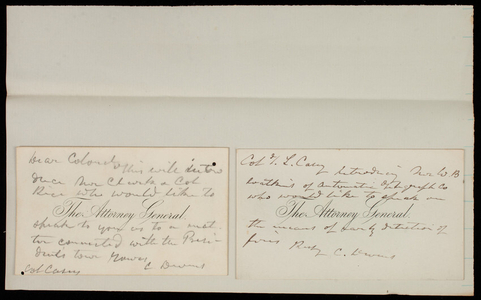 Dear Colonel, This will intro
duce Mr Clark & Col
who would like to
The Attorney General.
speak to you as to a mat
ter connected with the Presi
dents tour Yours
Col Casey C Devens
Col T. L. Casey
Introducing Mr W. B.
Watkins of Automatic Telegraph Co
who would like to speak on
The Attorney General.
the means of early detection of
fires Resp C. Devens